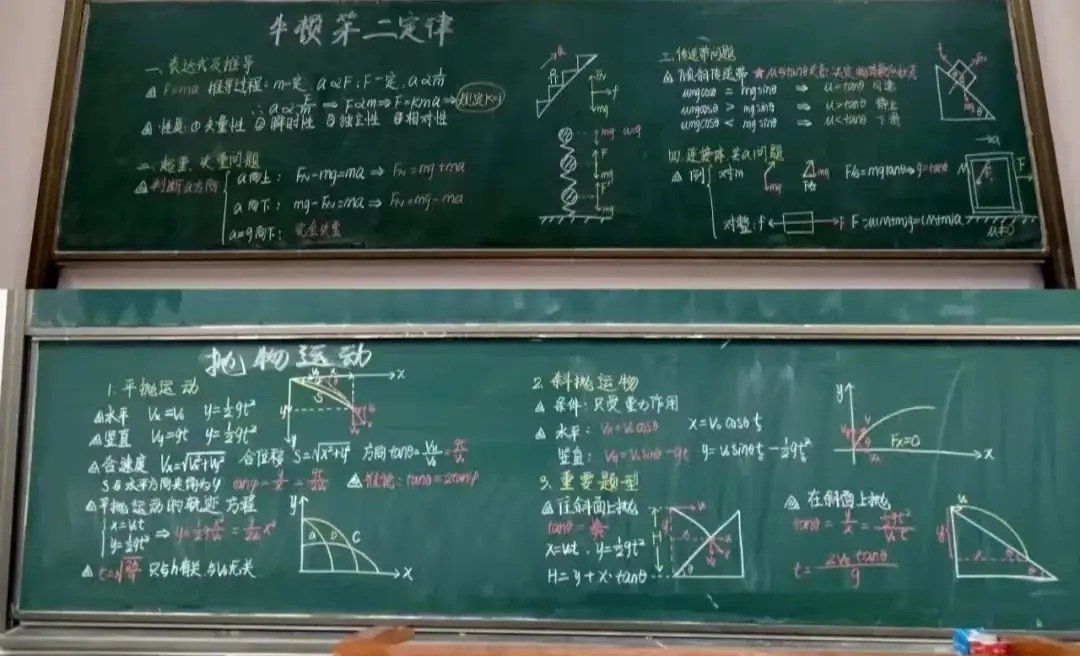 牛顿第二定律
一、表达式及推导
△ F=ma 推导过程: m一定, a∝F; F一定, a∝1/m
∴ a∝F/m ⇒ F∝ma ⇒ F=kma ⇒ 规定k=1
△ 性质: ① 矢量性 ② 瞬时性 ③ 独立性 ④ 相对性
二、超重、失重问题
△ 判断a方向
a向上: FN-mg=ma ⇒ FN=mg+ma
a向下: mg-FN=ma ⇒ FN=mg-ma
a=g向下: 完全失重
三、传送带问题
△ 倾斜传送带 ★ μ与tanθ关系: 决定物体
μmgcosθ = mgsinθ ⇒ μ=tanθ 匀速
μmgcosθ > mgsinθ ⇒ μ>tanθ 静止
μmgcosθ < mgsinθ ⇒ μ<tanθ 下滑
四、连接体共a问题
△ 例 对m mg F合 F合=mgtanθ
对整: f F
μ≠0
抛物运动
1. 平抛运动
△ 水平 Vx=V0 y=½gt²
△ 竖直 Vy=gt y=½gt²
△ 合速度 合位移 S=√x²+y² 方向tanθ=Vy/V0=gt/V0
S与水平方向夹角为φ tanφ=y/x=gt/2V0 △ 推论: tanθ=2tanφ
△ 平抛运动的轨迹方程
x=V0t
y=½gt²
△ t=√2h/g 只与h有关,与V0无关
a b c x y
2. 斜抛运物
△ 条件: 只受重力作用
△ 水平: Vx=V0cosθ x=V0cosθt
竖直: Vy=V0sinθ-gt y=V0sinθt-½gt²
Fx=0
3. 重要题型
△ 往斜面上抛
x=V0t, y=½gt²
H=y+x·tanθ
△ 在斜面上抛
tanθ=y/x=½gt²/V0t
t=2V0tanθ/g